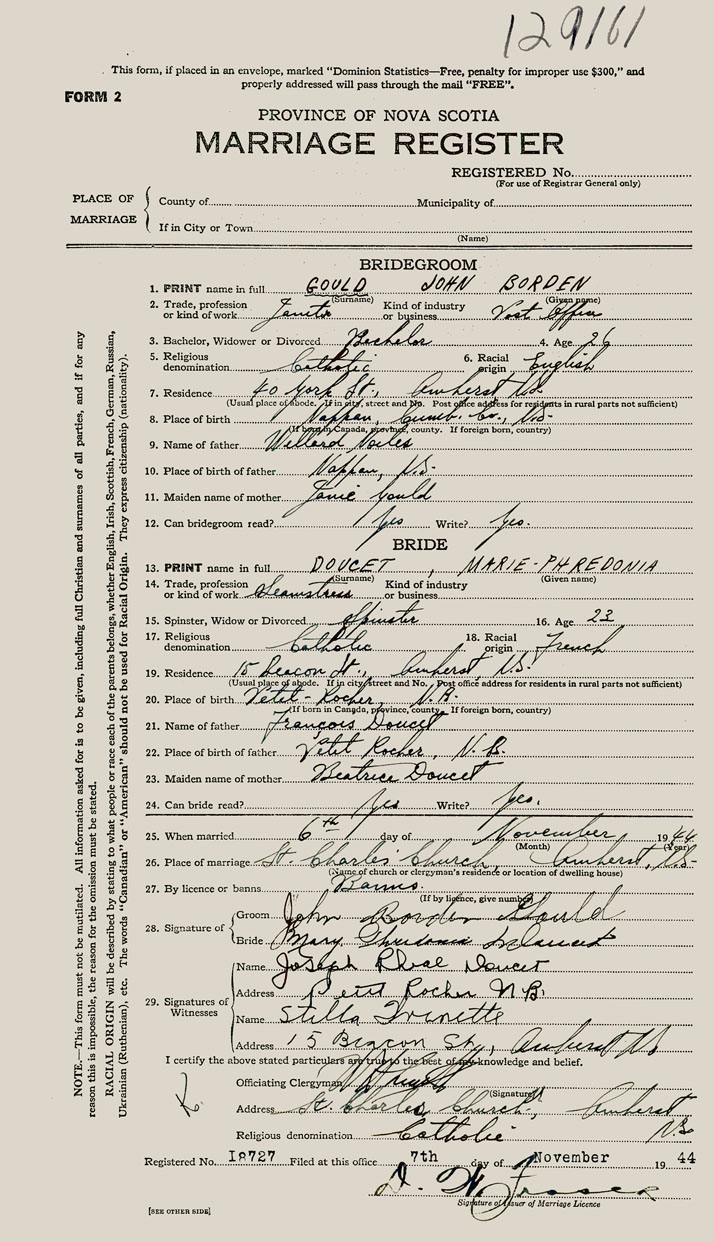 129161
This form, if placed in an envelope, marked "Dominion Statistics—Free, penalty for improper use $300," and
properly addressed will pass through the mail "FREE".
FORM 2
PROVINCE OF NOVA SCOTIA
MARRIAGE REGISTER
REGISTERED No.
(For use of Registrar General only)
PLACE OF MARRIAGE
County of Municipality of
If in City or Town
(Name)
BRIDEGROOM
1. PRINT name in full GOULD JOHN BORDEN
(Surname) (Given name)
2. Trade, profession or kind of work Janitor Kind of industry or business Post Office
3. Bachelor, Widower or Divorced Bachelor 4. Age 26
5. Religious denomination Catholic 6. Racial origin English
7. Residence 40 York St., Amherst N.S.
(Usual place of abode. If in city, street and No. Post office address for residents in rural parts not sufficient)
8. Place of birth Nappan, Cumb. Co., N.S.
(If born in Canada, province, county. If foreign born, country)
9. Name of father Willard
10. Place of birth of father Nappan, N.S.
11. Maiden name of mother Janie Gould
12. Can bridegroom read? Yes Write? Yes.
BRIDE
13. PRINT name in full DOUCET, MARIE-PHREDONIA
(Surname) (Given name)
14. Trade, profession or kind of work Seamstress Kind of industry or business
15. Spinster, Widow or Divorced Spinster 16. Age 23
17. Religious denomination Catholic 18. Racial origin French
19. Residence 15 Beacon St., Amherst, N.S.
(Usual place of abode. If in city, street and No. Post office address for residents in rural parts not sufficient)
20. Place of birth Petit-Rocher, N.B.
(If born in Canada, province, county. If foreign born, country)
21. Name of father François Doucet
22. Place of birth of father Petit Rocher, N.B.
23. Maiden name of mother Beatrice Doucet
24. Can bride read? Yes Write? Yes.
25. When married 6th day of November 1944
(Month) (Year)
26. Place of marriage St. Charles' Church, Amherst, N.S.
(Name of church or clergyman's residence or location of dwelling house)
27. By licence or banns Banns.
(If by licence, give number)
28. Signature of
Groom John Borden Gould
Bride Mary
29. Signatures of Witnesses
Name Joseph Doucet
Address Petit Rocher N.B.
Name Stella Trinette
Address 15 Beacon St, Amherst NS
I certify the above stated particulars are true to the best of my knowledge and belief.
Officiating Clergyman
(Signature)
Address St. Charles Church, Amherst N.S.
Religious denomination Catholic
Registered No. I8727 Filed at this office 7th day of November 1944
Signature of Issuer of Marriage Licence
[SEE OTHER SIDE]
NOTE.—This form must not be mutilated. All information asked for is to be given, including full Christian and surnames of all parties, and if for any
reason this is impossible, the reason for the omission must be stated.
RACIAL ORIGIN will be described by stating to what people or race each of the parents belongs, whether English, Irish, Scottish, French, German, Russian,
Ukrainian (Ruthenian), etc. The words "Canadian" or "American" should not be used for Racial Origin. They express citizenship (nationality).